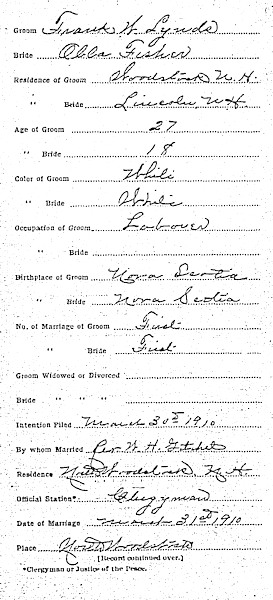 Groom Frank W. Lynds
Bride Olla Fisher
Residence of Groom Woodstock N.H.
" Bride Lincoln N H
Age of Groom 27
" Bride 18
Color of Groom White
" Bride White
Occupation of Groom Laborer
" Bride
Birthplace of Groom Nova Scotia
" Bride Nova Scotia
No. of Marriage of Groom First
" Bride First
Groom Widowed or Divorced
Bride " " "
Intention Filed March 30th 1910
By whom Married Geo. W. H.
Residence North Woodstock N H
Official Station* Clergyman
Date of Marriage March 31st 1910
Place North Woodstock
[Record continued over.]
*Clergyman or Justice of the Peace.